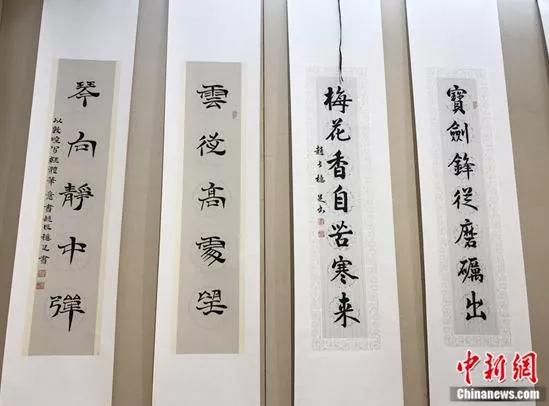 寶劍鋒從磨礪出
梅花香自苦寒来
雲從高處望
琴向靜中彈
以敦煌写經體筆意書
中新網
Chinanews.com